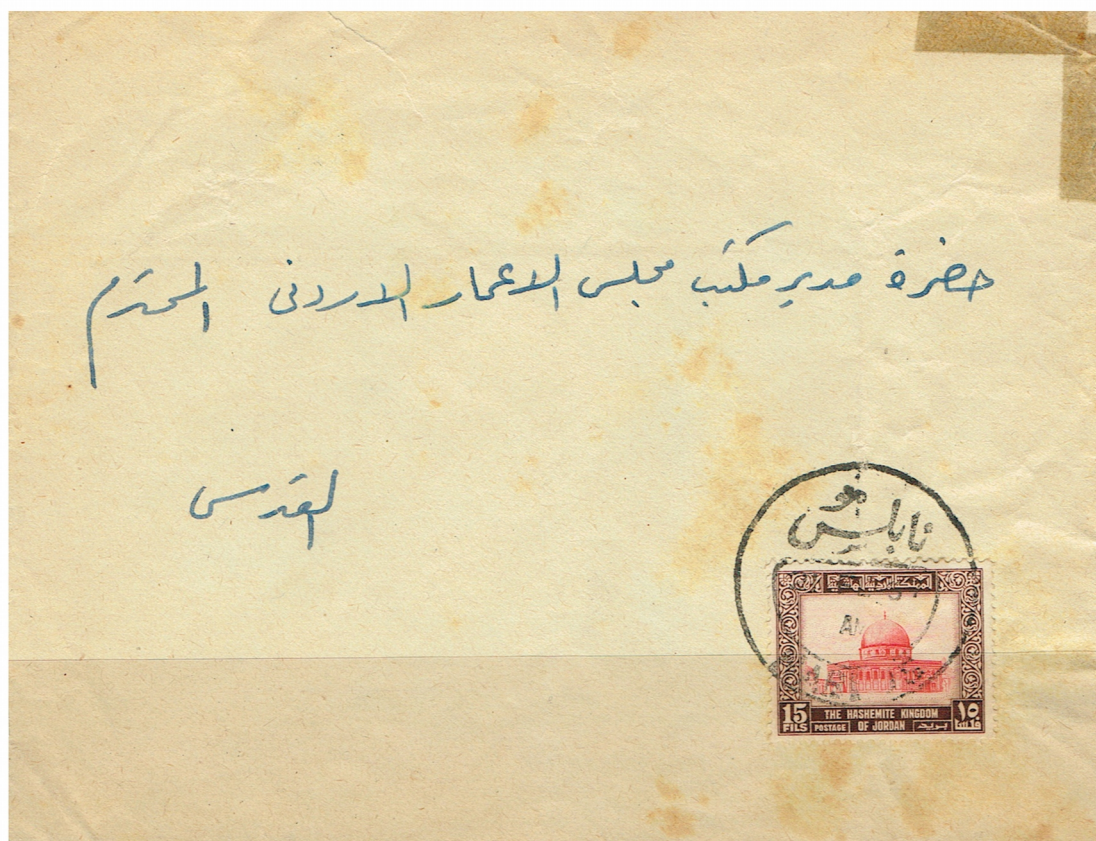 حضرة مدير مكتب مجلس الاعمار الاردني المحترم
القدس
نابلس
المملكة الاردنية الهاشمية
15 FILS
THE HASHEMITE KINGDOM OF JORDAN
POSTAGE
بريد
١٥ فلسا